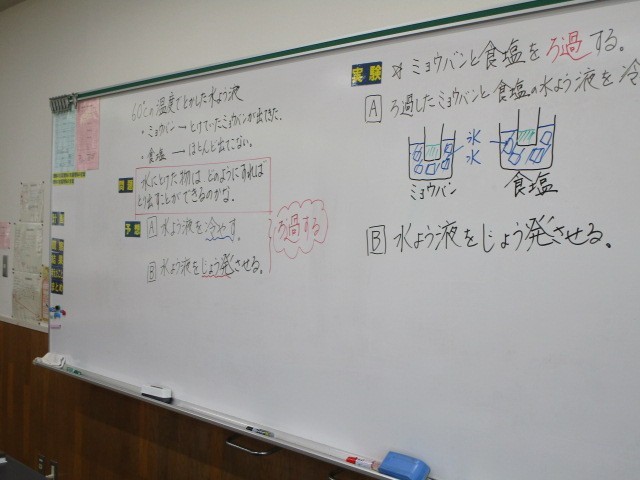 60°の温度でとかした水よう液
・ミョウバン→とけていたミョウバンが出てきた。
・食塩→ほとんど出てこない。
問題
水にとけた物は、どのようにすれば
とり出すことができるのかな。
予想
A 水よう液を冷やす。
B 水よう液をじょう発させる。
ろ過する
実験
ミョウバンと食塩をろ過する。
A ろ過したミョウバンと食塩の水よう液を冷
氷
水
ミョウバン
食塩
B 水よう液をじょう発させる。